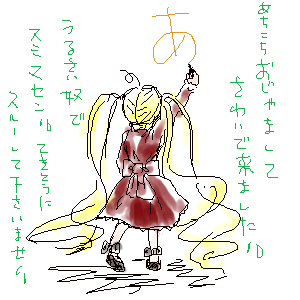 あ
あちこちおじゃまして
さわいで来ました
うるさい奴で
スミマセン
てきとうに
スルーして下さいませ